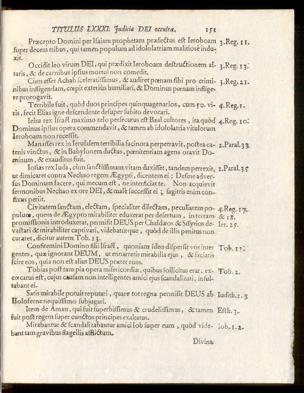 TITULUS LXXXI. Judicia DEI occulta. 151
Præcepto Domini per Isaiam prophetam præfectus est Ieroboam 3. Reg. 11.
super decem tribus, qui tamen populum ad idololatriam malitiosè indu-
xit.
Occidit leo virum DEI, qui prædixit Ieroboam destructionem al- 3. Reg. 13.
taris, & de carnibus ipsius mortui non comedit.
Cùm esset Achab sceleratissimus, & audiret pœnam sibi pro crimi- 3. Reg. 21.
nibus infligendam, cœpit exteriùs humiliari, & Dominus pœnam inflige-
re prorogavit.
Terribile fuit, quòd duos principes quinquagenarios, cum 50. vi- 4. Reg. 1.
ris, fecit Elias igne descendente desuper subitò devorari.
Iehu rex Israël maximo zelo persecutus est Baal cultores, ita quòd 4. Reg. 10.
Dominus ipsius opera commendavit, & tamen ab idololatria vitulorum
Ieroboam non recessit.
Manasses rex in Ierusalem terribilia facinora perpetravit, postea ca- 2. Paral. 33.
tenis vinctus, & in Babylonem ductus, pœnitentiam agens oravit Do-
minum, & exauditus fuit.
Iosias rex Iuda, cùm sanctissimam vitam duxisset, tandem prerexit, 2. Paral. 35
ut dimicaret contra Nechao regem Ægypti, dicentem ei; Desine adver-
sus Dominum facere, qui mecum est, ne interficiat te. Non acquievit
sermonibus Nechao ex ore DEI, & malè successit ei; sagittis enim con-
fixus periit.
Civitatem sanctam, electam, specialiter dilectam, peculiarem po- 4. Reg. 17.
pulum, quem de Ægypto mirabiliter eduxerat per desertum, in terram & 18.
promissionis introduxerat, permisit DEUS per Chaldæos & Assyrios de- Ier. 25.
vastari & mirabiliter captivari, videbaturque, quòd de illis penitus non
curaret, dicitur autem Tob. 13.
Confitemini Domino filii Israël, quoniam ideo dispersit vos inter Tob. 13.
gentes, quæ ignorant DEUM, ut enarretis mirabilia ejus, & faciatis
scire eos, quia non est alius DEUS præter eum.
Tobias post tam pia opera misericordiæ, quibus sollicitus erat, ex- Tob. 2.
cæcatus est, cujus causam non intelligentes amici ejus scandalizati, insul-
tabant ei.
Satis mirabile potuit reputari, quare tot regna permisit DEUS ab Iudith. 2. 3
Holoferne nequissimo subjugari.
Item de Aman, qui fuit superbissimus & crudelissimus, & tamen Esth. 3.
fuit post regem super cunctos principes exaltatus.
Mirabantur & scandalizabantur amici Iob super eum, quòd vide- Iob. 1. 2.
bant tam gravibus flagellis afflictum.
Divina